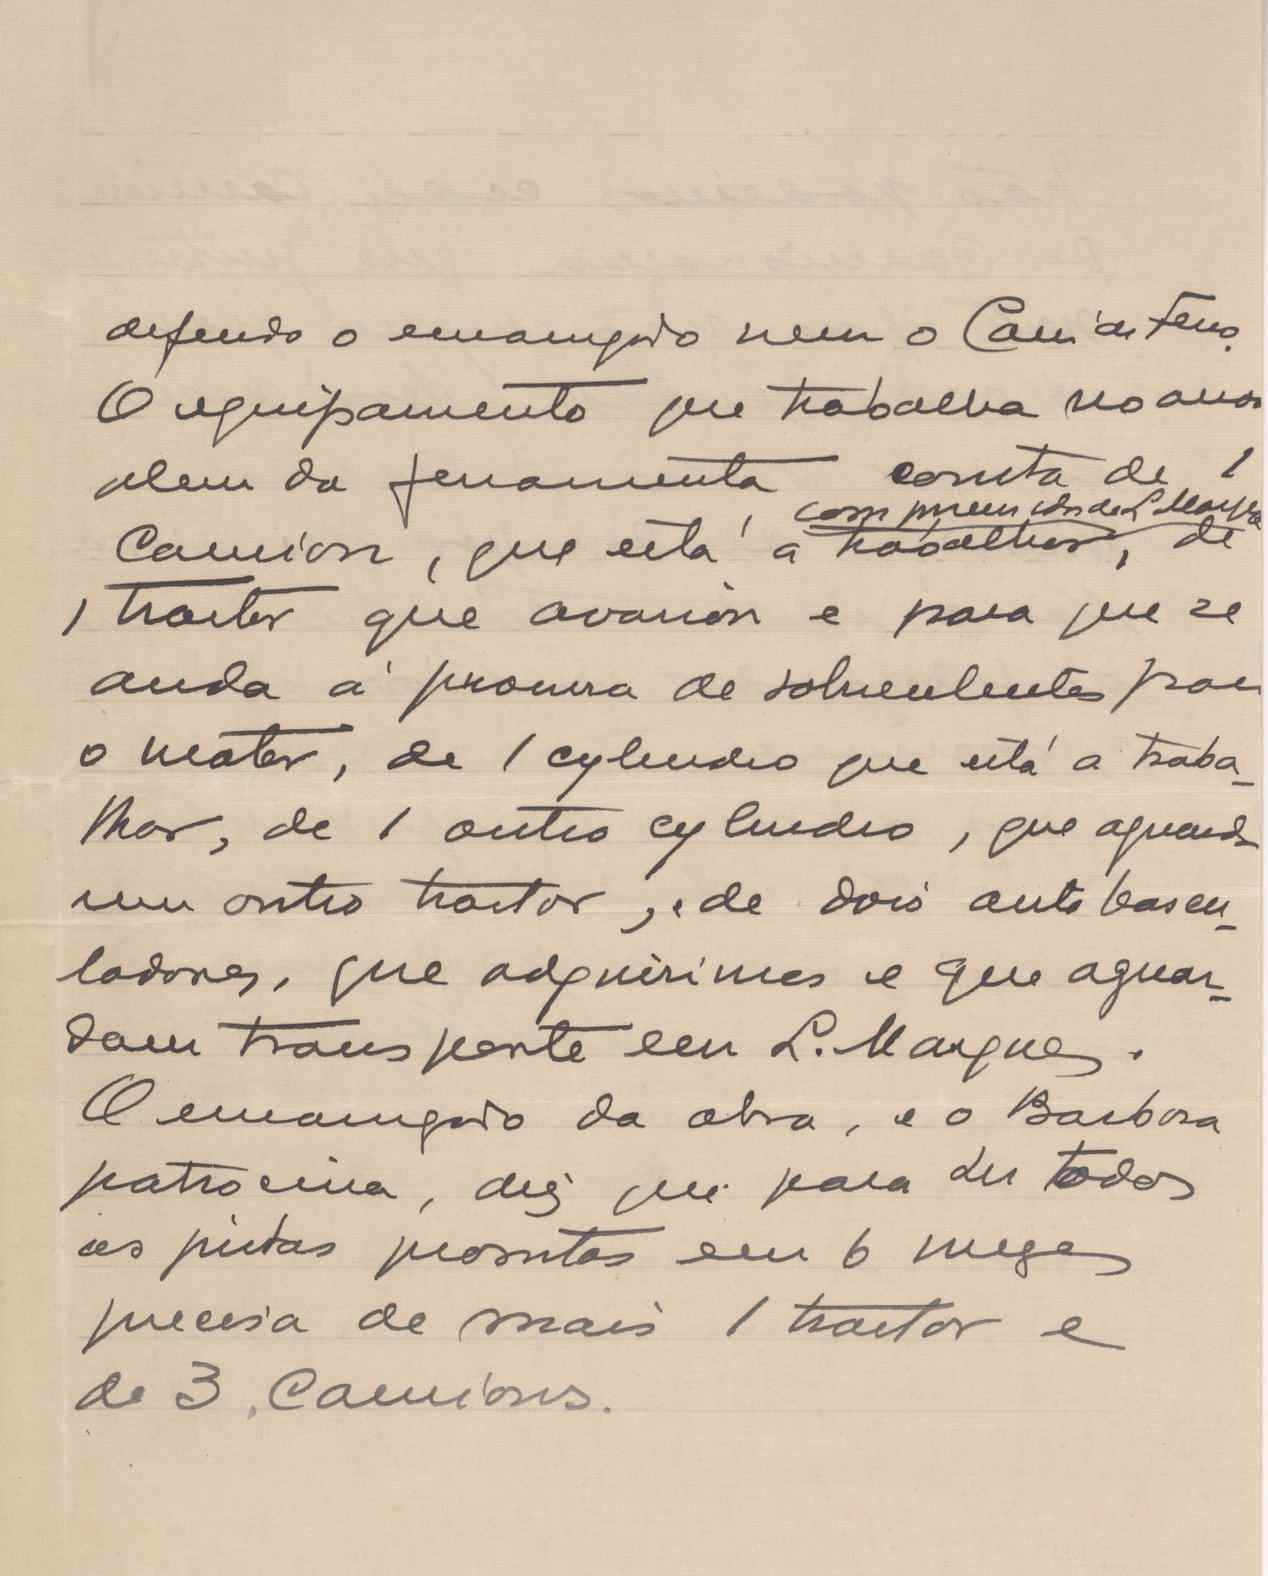 defendo o encarregado nem o Cam. de Ferro.
O equipamento que trabalha no aero
alem da ferramenta, consta de 1
comprimidos de L. Marques
Camion, que está a trabalhar, de
1 tractor que avariou e para que se
anda á procura de sobrecelentes para
o motor, de 1 cylindro que está a traba-
lhar, de 1 outro cylindro, que aguarda
um outro tractor, e de dois auto bascu-
ladores, que adquirimos e que aguar-
dam transporte em L. Marques.
O encarregado da obra, e o Barbosa
patrocina, diz que para dar todas
as pistas promptas em 6 mezes
precisa de mais 1 tractor e
de 3 Camions.